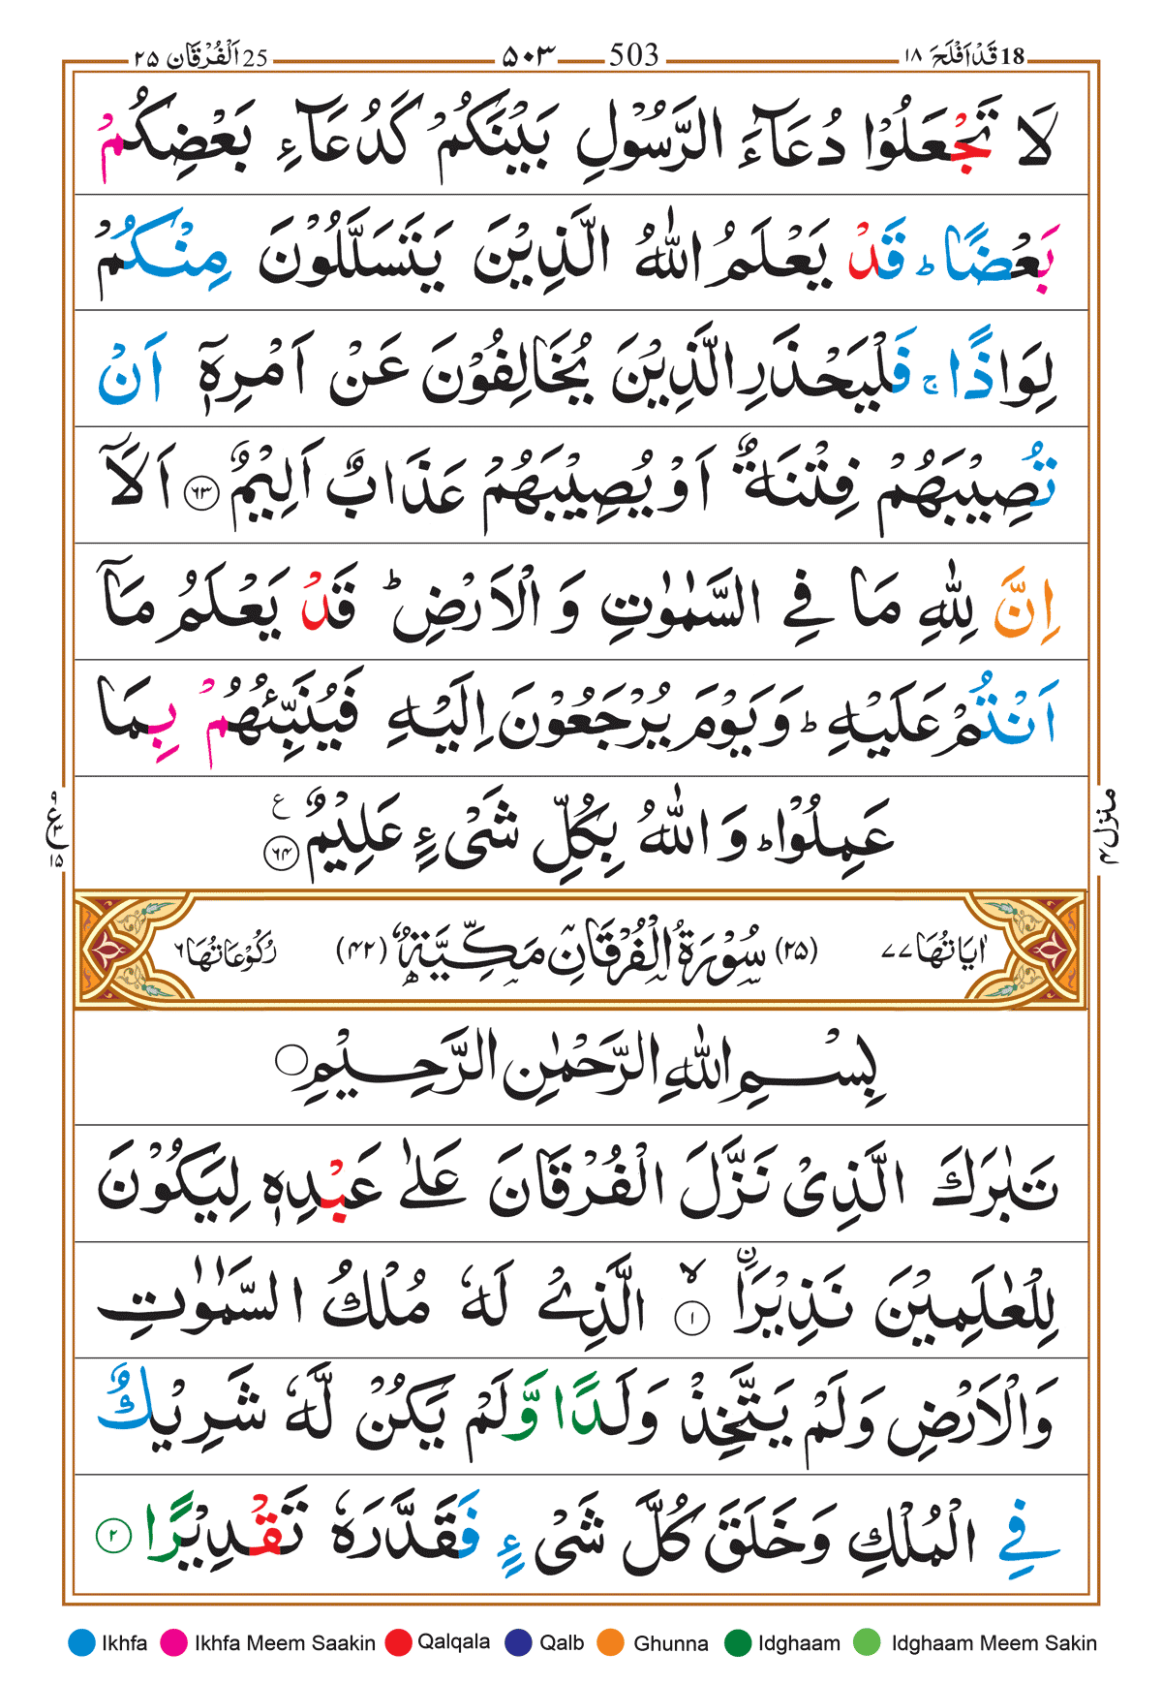 18 قَدْاَفْلَحَ ١٨ 503 ٥٠٣ 25 اَلْفُرْقَان ٢٥
لَا تَجْعَلُوْا دُعَآءَ الرَّسُوْلِ بَيْنَكُمْ كَدُعَآءِ بَعْضِكُمْ
بَعْضًا ؕ قَدْ يَعْلَمُ اللّٰهُ الَّذِيْنَ يَتَسَلَّلُوْنَ مِنْكُمْ
لِوَاذًا ۚ فَلْيَحْذَرِ الَّذِيْنَ يُخَالِفُوْنَ عَنْ اَمْرِهٖۤ اَنْ
تُصِيْبَهُمْ فِتْنَةٌ اَوْ يُصِيْبَهُمْ عَذَابٌ اَلِيْمٌ ٦٣ اَلَاۤ
اِنَّ لِلّٰهِ مَا فِي السَّمٰوٰتِ وَ الْاَرْضِ ؕ قَدْ يَعْلَمُ مَاۤ
اَنْتُمْ عَلَيْهِ ؕ وَ يَوْمَ يُرْجَعُوْنَ اِلَيْهِ فَيُنَبِّئُهُمْ بِمَا
عَمِلُوْا ؕ وَ اللّٰهُ بِكُلِّ شَيْءٍ عَلِيْمٌ ٦٤ ع
منزل ٤
ع ٣ ١٥
اٰيَاتُهَا ٧٧ (٢٥) سُوْرَةُ الْفُرْقَانِ مَكِّيَّةٌ (٤٢) رُكُوْعَاتُهَا ٦
بِسْمِ اللّٰهِ الرَّحْمٰنِ الرَّحِيْمِ
تَبٰرَكَ الَّذِيْ نَزَّلَ الْفُرْقَانَ عَلٰى عَبْدِهٖ لِيَكُوْنَ
لِلْعٰلَمِيْنَ نَذِيْرًا ۙ ١ الَّذِيْ لَهٗ مُلْكُ السَّمٰوٰتِ
وَالْاَرْضِ وَلَمْ يَتَّخِذْ وَلَدًا وَّلَمْ يَكُنْ لَّهٗ شَرِيْكٌ
فِي الْمُلْكِ وَخَلَقَ كُلَّ شَيْءٍ فَقَدَّرَهٗ تَقْدِيْرًا ٢
Ikhfa Ikhfa Meem Saakin Qalqala Qalb Ghunna Idghaam Idghaam Meem Sakin